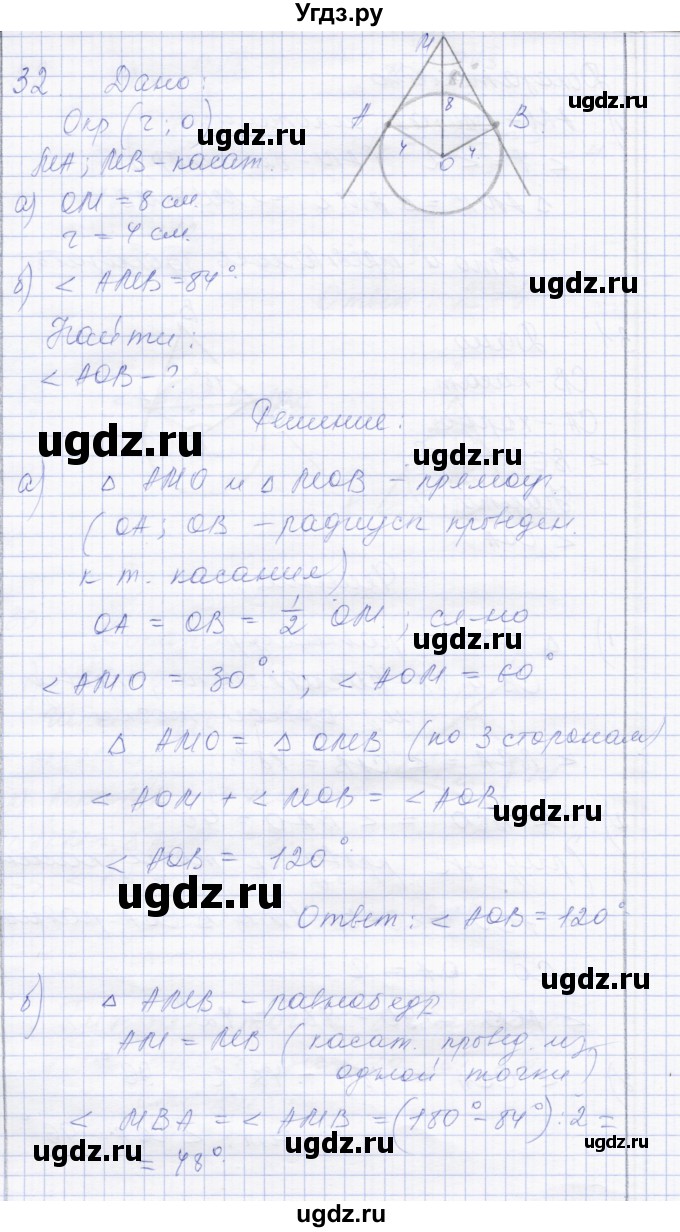 Угдз.ру
32 Дано:
Окр (r; o)
MA; MB - касат.
а) OM = 8 см.
r = 4 см.
б) < AMB = 84°
M
8
A
B
4
4
O
Найти:
< AOB - ?
Решение:
а) Δ AMO и Δ MOB - прямоуг.
(OA; OB - радиусы проведен.
к т. касания)
OA = OB = 1/2 OM.; сл-но
< AMO = 30°; < AOM = 60°
Δ AMO = Δ OMB (по 3 сторонам)
< AOM + < MOB = < AOB
< AOB = 120°
Ответ: < AOB = 120°
б) Δ AMB - равнобедр
AM = MB (касат. провед. из
одной точки)
< MBA = < AMB = (180° - 84°) : 2 =
= 48°
ugdz.ru
ugdz.ru
ugdz.ru
ugdz.ru
ugdz.ru
ugdz.ru
ugdz.ru
ugdz.ru
ugdz.ru
ugdz.ru
ugdz.ru
ugdz.ru